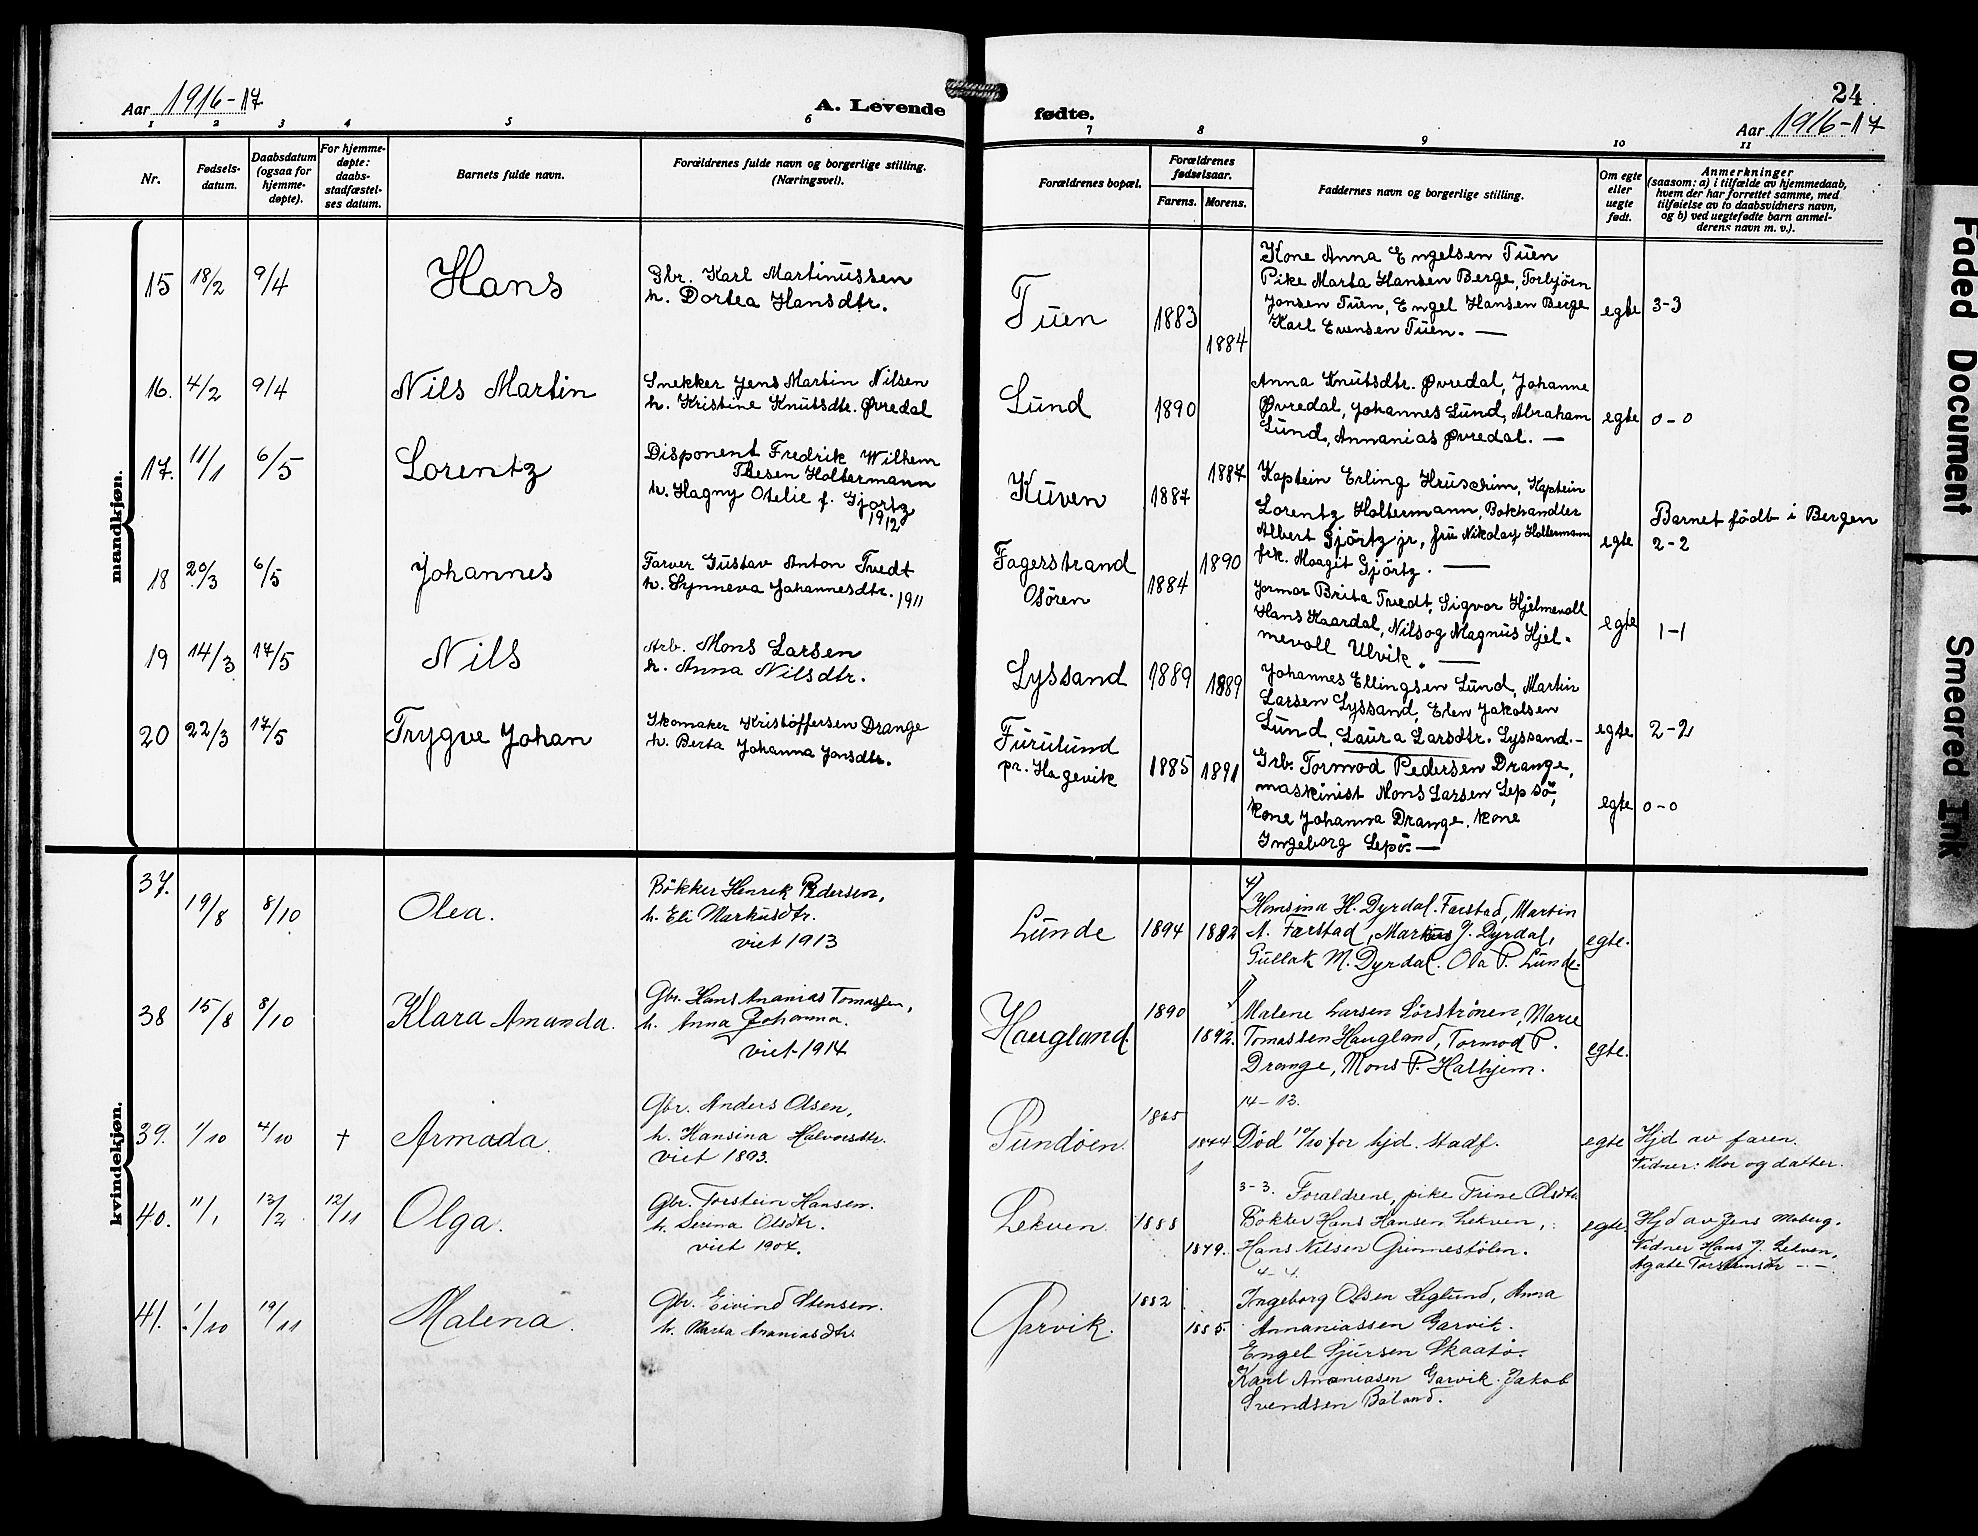 24
Aar 1916-17
A. Levende
fødte.
Aar 1916-17
1 2 3 4 5 6 7 8 9 10 11
Nr.
Fødsels-
datum.
Daabsdatum
(ogsaa for
hjemme-
døpte).
For hjemme-
døpte:
daabs-
stadfæstel-
ses datum.
Barnets fulde navn.
Forældrenes fulde navn og borgerlige stilling.
(Næringsvei).
Forældrenes bopæl.
Forældrenes
fødselsaar.
Farens. Morens.
Faddernes navn og borgerlige stilling.
Om egte
eller
uegte
født.
Anmerkninger
(saasom: a) i tilfælde av hjemmedaab,
hvem der har forrettet samme, med
tilføielse av to daabsvidners navn,
og b) ved uegtefødte barn anmel-
derens navn m. v.).
mandkjøn.
15 18/2 9/4 Hans
Gbr. Karl Martinussen
h. Dortea Hansdtr.
Tuen 1883 1884
Kone Anna Engelsen Tuen
Pike Marta Hansen Berge, Torbjörn
Jonsen Tuen, Engel Hansen Berge
Karl Evensen Tuen. —
egte 3-3
16. 4/2 9/4 Nils Martin
Snekker Jens Martin Nilsen
h. Kristine Knutsdtr. Øvredal
Lund 1890 1887
Anna Knutsdtr. Øvredal, Johanne
Øvredal, Johannes Lund, Abraham
Lund, Annanias Øvredal. —
egte 0-0
17. 11/1 6/5 Lorentz
Disponent Fredrik Wilhem
Thesen Holtermann
h. Hagny Otelie f. Gjørtz
1912
Kuven 1887 1890
Kaptein Erling Hruschim, Kaptein
Lorentz Holtermann, Bokhandler
Albert Gjörtz jr, fru Nikolay Holtermann
frk. Maagit Gjörtz. —
egte
Barnet födt i Bergen
2-2
18 20/3 6/5 Johannes
Farver Gustav Anton Tvedt
h. Synneva Johannesdtr. 1911
Fagerstrand
Osören
1884
Jormor Brita Tvedt, Sigvor Hjelmevoll
Hans Kaardal, Nils og Magnus Hjel-
mevoll Ulvik. —
egte 1-1
19 14/3 17/5 Nils
Arb. Mons Larsen
h. Anna Nilsdtr.
Lyssand 1889 1889
Johannes Ellingsen Lund, Martin
Larsen Lyssand, Elen Jakobsen
Lund, Laura Larsdtr. Lyssand.-
egte 2-2
20 22/3 17/5 Trygve Johan
Skomaker Kristoffersen Drange
h. Berta Johanna Jonsdtr.
Furulund
pr. Hagevik
1885 1891
Grb. Tormod Pedersen Drange,
maskinist Mons Larsen Lepsö,
kone Johanna Drange, kone
Ingeborg Lepsö. —
egte 0-0
kvindekjøn.
37. 19/8 8/10 Olea.
Bökker Henrik Pedersen,
h. Eli Markusdtr.
viet 1913
Lunde 1894 1882
Hansina H. Dyrdal. Farstad, Martin
A. Farstad, Markus J. Dyrdal,
Gullak M. Dyrdal. Ola P. Lunde.
egte.
38 15/8 8/10 Klara Amanda.
Gbr. Hans Ananias Tomassen,
h. Anna Johanna.
viet 1914
Haugland. 1890 1892.
Malene Larsen Sørstrønen, Marie
Tomassen Haugland, Tormod P.
Drange, Mons P. Halhjem.
egte.
39. 1/10 4/10 † Armada.
Gbr. Anders Olsen,
h. Hansina Halvorsdtr.
viet 1893.
Sundöen. 1865
14-13.
Død 10/10 for hjd. stadf.
egte
Hjd av faren.
Vidner: Mor og datter.
40. 11/1 13/2 12/11 Olga.
Gbr. Torstein Hansen.
h. Serina Olsdtr.
viet 1904.
Lekven 1888 1879.
3-3. Forældrene, pike Trine Olsdtr
Bökker Hans Hansen Lekven,
Hans Nilsen Grinnestølen.
egte.
Hjd av Jens Moberg.
Vidner Hans J. Lekven,
Agate Torsteinsdtr - -
41. 1/10 19/11 Malena.
Gbr. Eivind Stensen.
h. Marta Ananiasdtr.
Garvik. 1882 1885.
4-4.
Ingeborg Olsen Heglund, Anna
Annaniassen Garvik.
Engel Sjursen Skaatö.
Karl Ananiasen Garvik. Jakob
Svendsen Bøland.
Faded Document
Smeared Ink